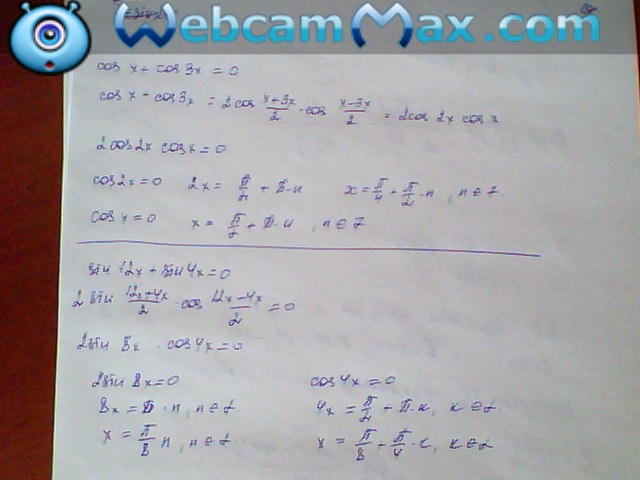 WebcamMax.com
cos x + cos 3x = 0
cos x - cos 3x = 2 cos (x+3x)/2 · cos (x-3x)/2 = 2 cos 2x cos x
2 cos 2x cos x = 0
cos 2x = 0 2x = П/2 + П·n x = П/4 + П/2·n, n ∈ Z
cos x = 0 x = П/2 + П·n, n ∈ Z
sin 12x + sin 4x = 0
2 sin (12x+4x)/2 · cos (12x-4x)/2 = 0
2 sin 8x · cos 4x = 0
2 sin 8x = 0 cos 4x = 0
8x = П·n, n ∈ Z 4x = П/2 + П·k, k ∈ Z
x = П/8 n, n ∈ Z x = П/8 + П/4·k, k ∈ Z